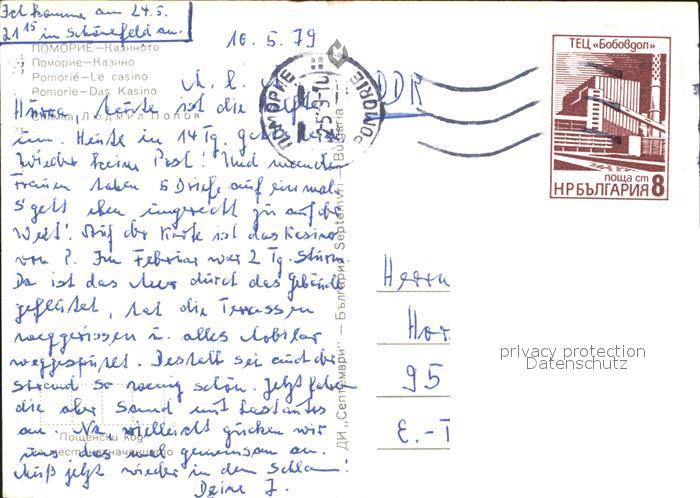 Ich komme am 24.5.
21 15 in Schönefeld an.
10.5.79
ПОМОРИЕ—Казиното
Поморие—Казино
Pomorié—Le casino
Pomorie—Das Kasino
Снимка Людмил Попов
M. l.
Hurra, heute ist die Hälfte
um. Heute in 14 Tg. geht's
wieder keine Post! Und manche
Frauen haben 5 Briefe auf einmal.
S'geht eben ungerecht zu auf der
Welt! Auf der Karte ist das Kasino
von P. Im Februar war 2 Tg. Sturm.
Da ist das Meer durch das Gebäude
geflutet, hat die Terrassen
weggerissen u. alles Mobilar
weggespült. Deshalb sei auch der
Strand so wenig schön. Jetzt fahren
die aber Sand mit Lastautos
an. Na vielleicht gucken wir
uns das mal gemeinsam an.
Muß jetzt wieder in den Schlamm.
Deine J.
Пощенски код
на местоназначението
ДИ „Септември" — България Septemvri — Bulgaria
ПОМОРИЕ
POMORIE
DDR
ТЕЦ «Бобовдол»
поща ст
НРБЪЛГАРИЯ 8
Herrn
Hor
95
E.-T
privacy protection
Datenschutz